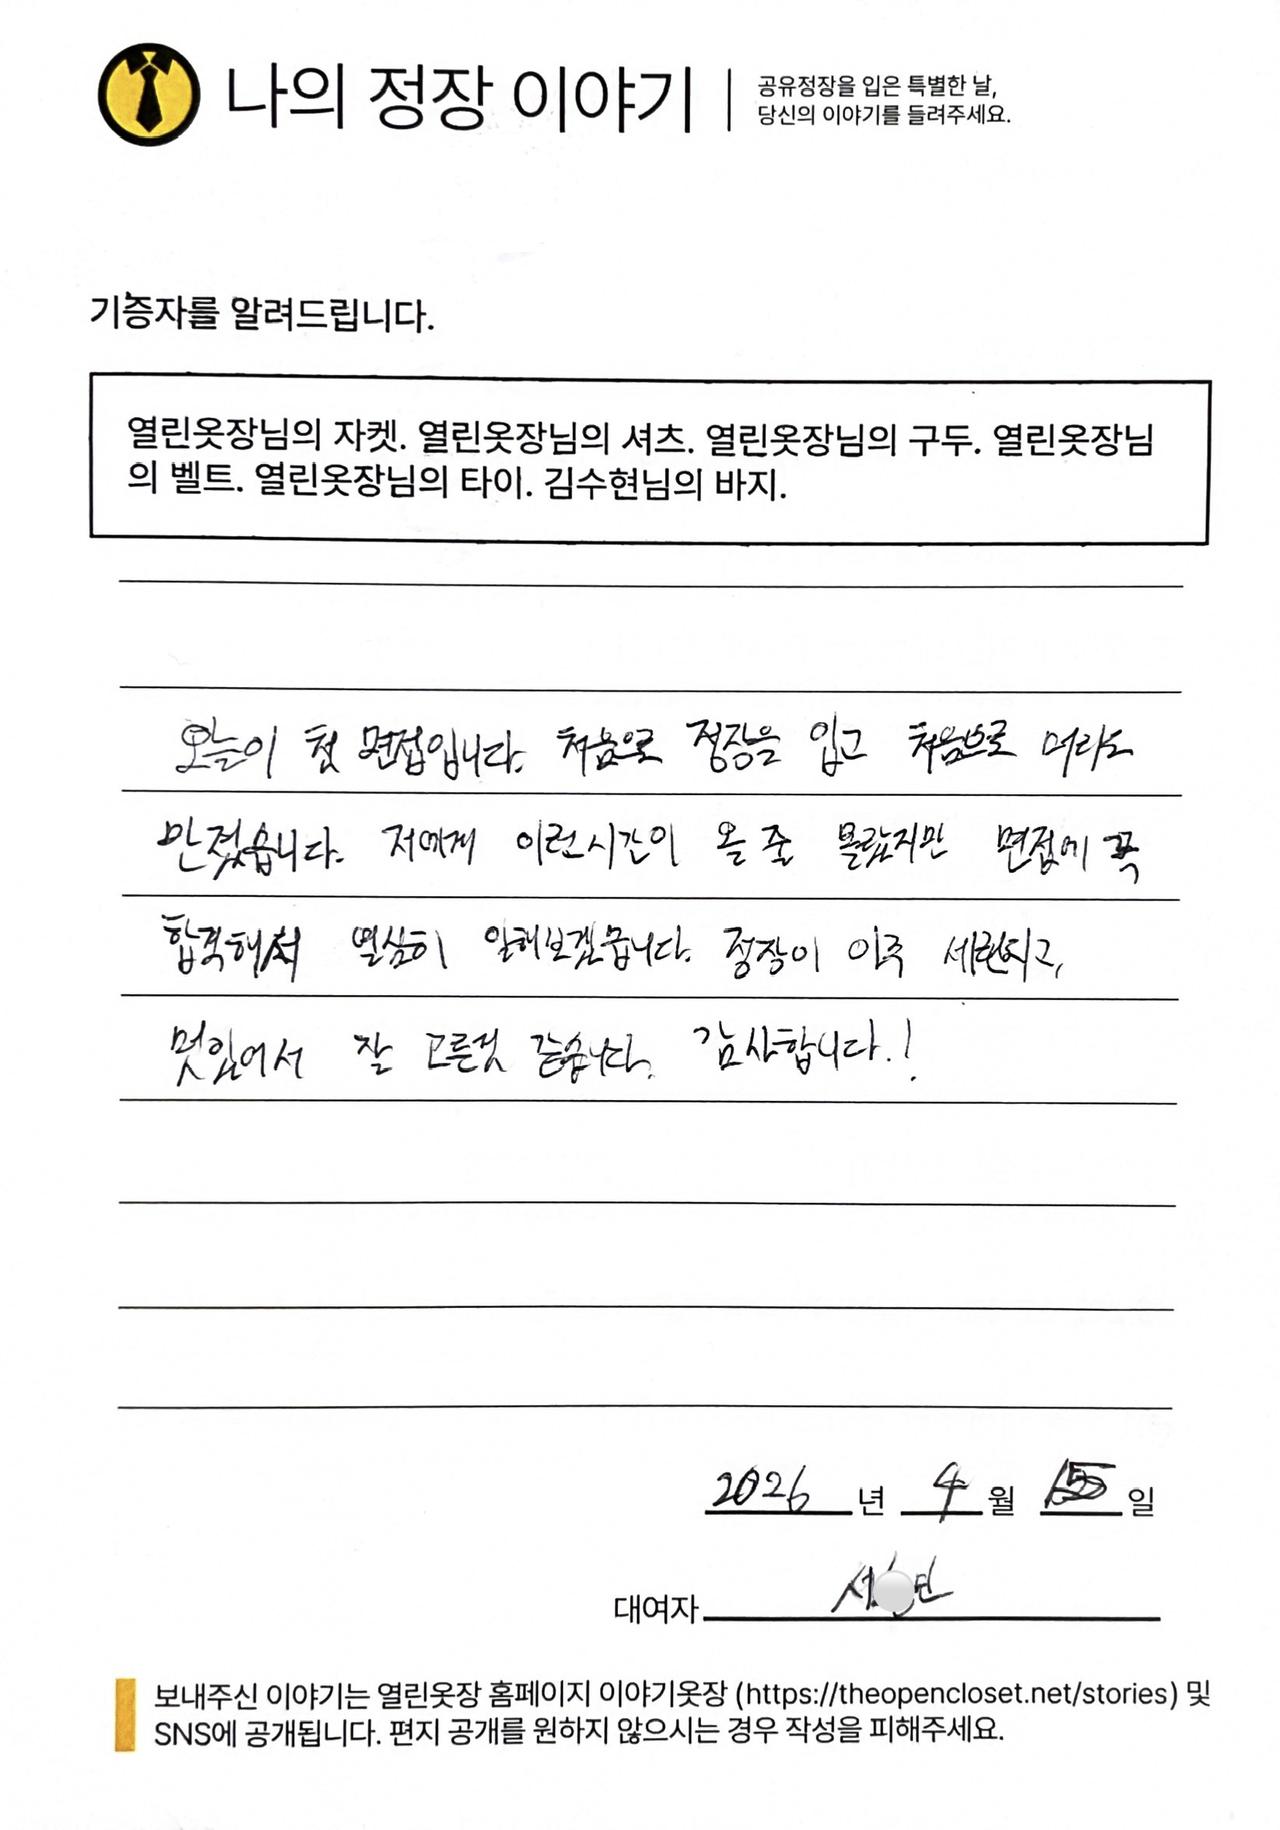 나의 정장 이야기
공유정장을 입은 특별한 날,
당신의 이야기를 들려주세요.
기증자를 알려드립니다.
열린옷장님의 자켓. 열린옷장님의 셔츠. 열린옷장님의 구두. 열린옷장님
의 벨트. 열린옷장님의 타이. 김수현님의 바지.
오늘이 첫 면접입니다. 처음으로 정장을 입고 처음으로 머리도
만졌습니다. 저에게 이런시간이 올 줄 몰랐지만 면접에 꼭
합격해서 열심히 일해보겠습니다. 정장이 아주 세련되고,
멋있어서 잘 고른것 같습니다. 감사합니다.!
2026 년 4 월 일
대여자 서 빈
보내주신 이야기는 열린옷장 홈페이지 이야기옷장 (https://theopencloset.net/stories) 및
SNS에 공개됩니다. 편지 공개를 원하지 않으시는 경우 작성을 피해주세요.